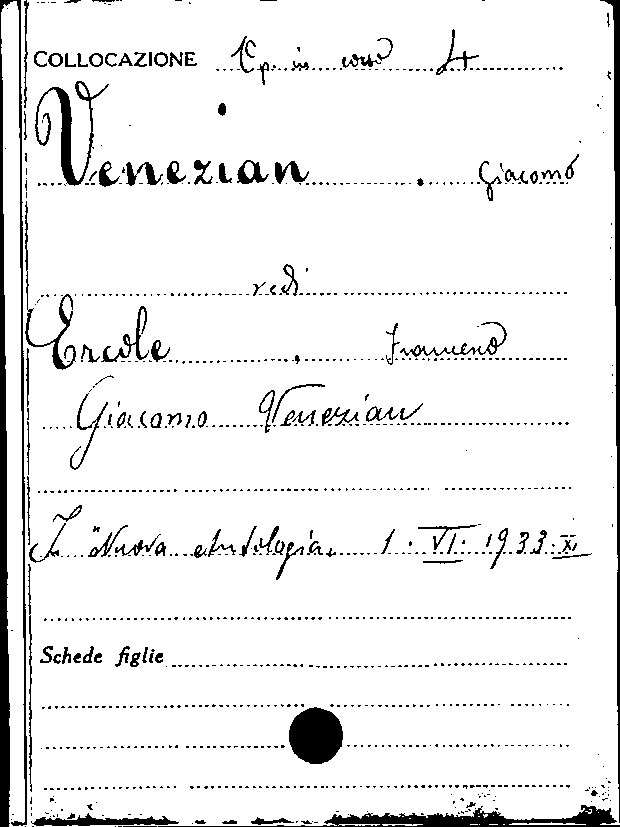 COLLOCAZIONE Ep. in corso 4
Venezian . Giacomo
vedi
Ercole , Francesco
Giacomo Venezian
In "Nuova antologia. 1. VI. 1933. XI
Schede figlie